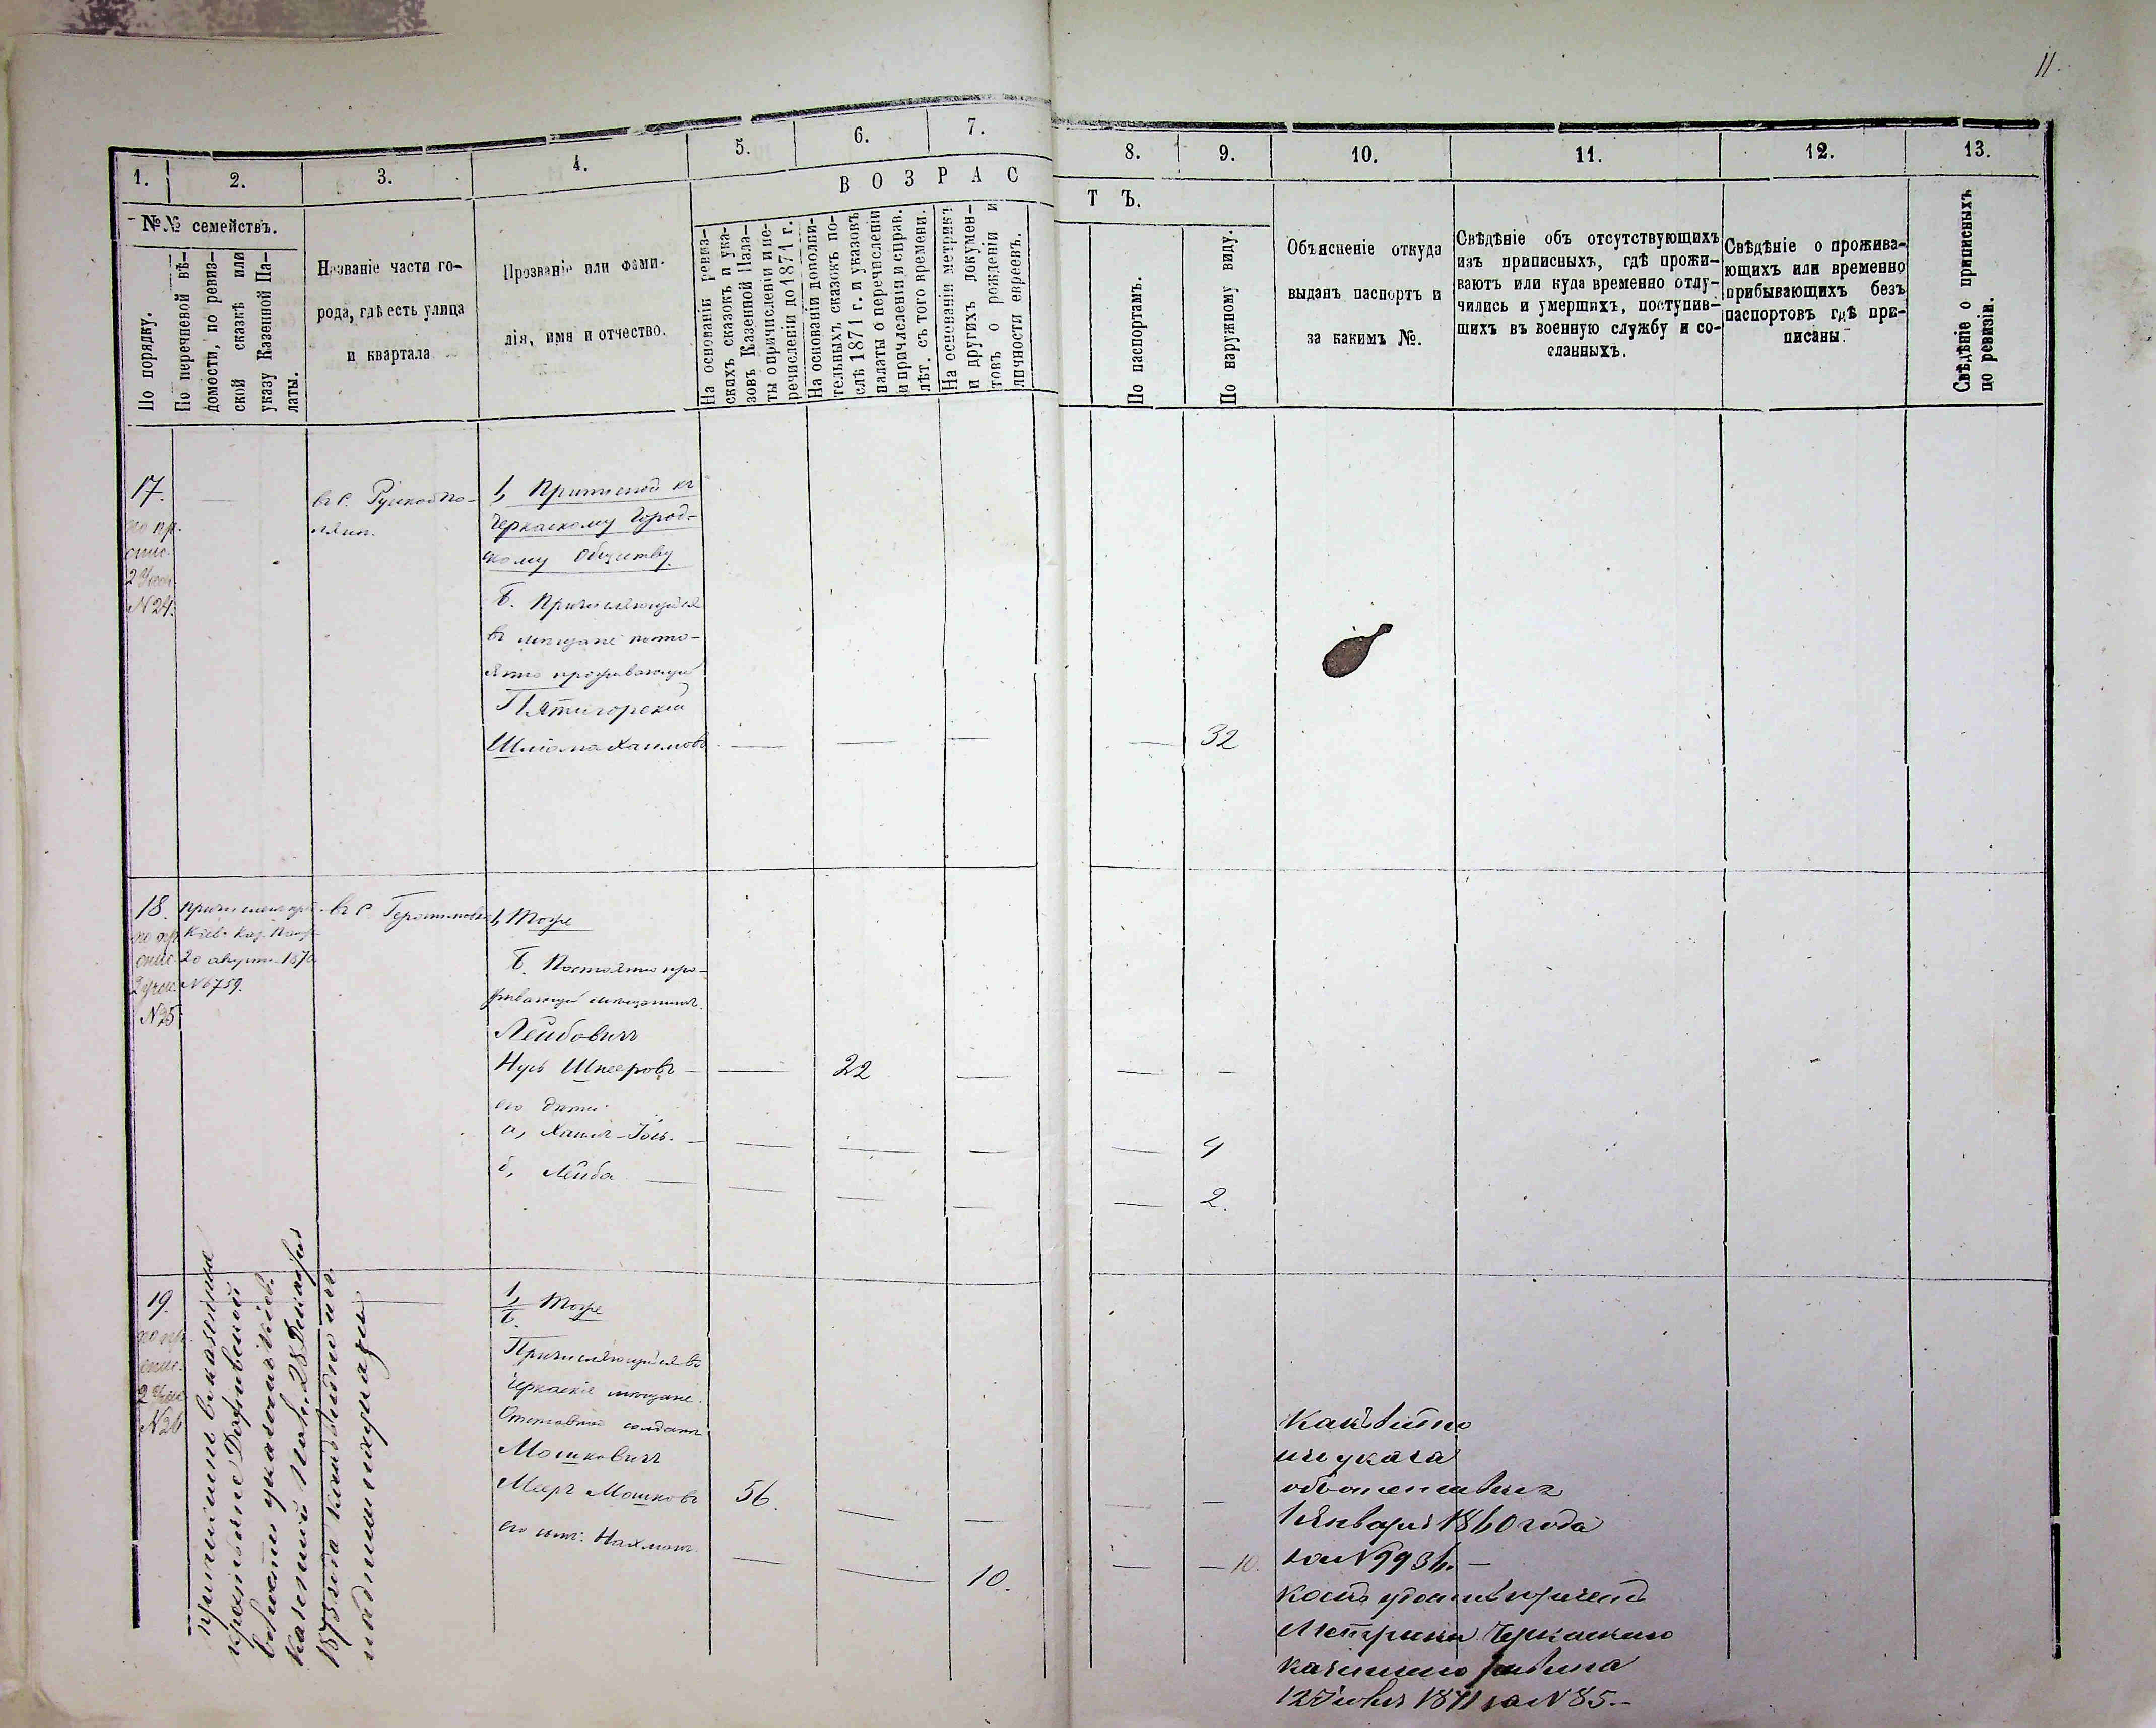 11.
1.
2.
3.
4.
5.
6.
7.
8.
9.
10.
11.
12.
13.
В О З Р А С
Т Ъ.
№№ семействъ.
По порядку.
По перечневой вѣ-
домости, по ревиз-
ской сказкѣ или
указу Казенной Па-
латы.
Названіе части го-
рода, гдѣ есть улица
и квартала
Прозваніе или фами-
лія, имя и отчество.
На основаніи ревиз-
скихъ сказокъ и ука-
зовъ Казенной Пала-
ты о причисленіи и пе-
речисленіи до 1871 г.
На основаніи дополни-
тельныхъ сказокъ по-
слѣ 1871 г. и указовъ
палаты о перечисленіи
и причисленіи и справ.
лѣт. съ того времени.
На основаніи метрикъ
и другихъ докумен-
товъ о рожденіи и
личности евреевъ.
По паспортамъ.
По наружному виду.
Объясненіе откуда
выданъ паспортъ и
за какимъ №.
Свѣдѣніе объ отсутствующихъ
изъ приписныхъ, гдѣ прожи-
ваютъ или куда временно отлу-
чились и умершихъ, поступив-
шихъ въ военную службу и со-
сланныхъ.
Свѣдѣніе о прожива-
ющихъ или временно
прибывающихъ безъ
паспортовъ гдѣ при-
писаны.
Свѣдѣніе о приписныхъ
по ревизіи.
17.
по пр.
спис.
2 Учас.
N 24.
въ с. Руской По-
лянѣ.
1, Приписной къ
Черкаскому Город-
скому Обществу.
Б. Причисляющійся
въ мещане посто-
янно проживающій
Пятигорскій
Шліома Хаимовъ
32
18.
по пр.
спис.
2 учас.
N 25
20 августа 1870
N 6759.
въ с.
1, Тоже
Б. Постоянно про-
живающій мещанинъ.
Лейбовичъ
Нусь Шнееровъ
22
его дети:
а, Хаимъ-Іось.
4
б, Лейба
2.
19.
по пр.
спис.
2 Учас.
N 26
причисленъ въ
Казенной Палаты 28 Декабря
1873 года какъ видно изъ
1, Тоже
Б.
Причисляющійся въ
Черкаскіе мещане.
Отставной солдатъ
Мошковичъ
Мееръ Мошковъ
56.
его сынъ: Нахманъ.
10.
10.
Какъ видно
изъ указа
объ отставке
1 Января 1860 года
за N 9936.
Метрики Черкаскаго
казеннаго равина
12 Іюля 1871 за N 85.